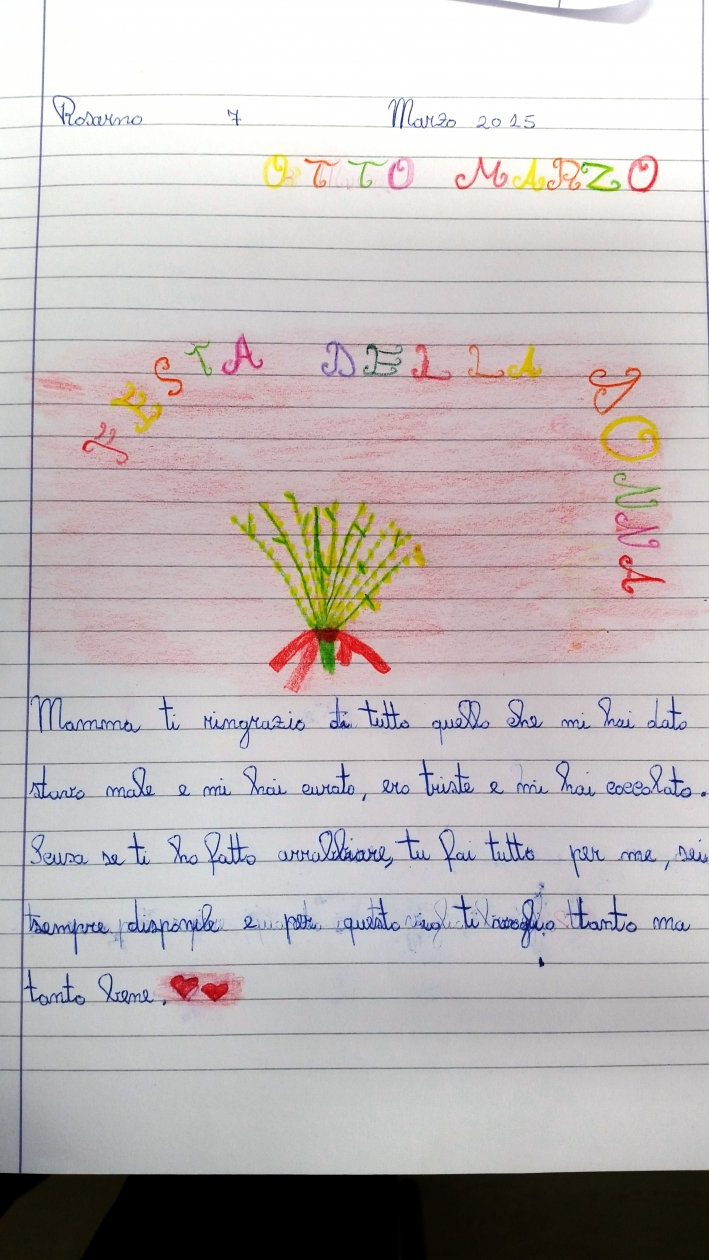 Rosarno 7 Marzo 2015
OTTO MARZO
FESTA DELLA DONNA
Mamma ti ringrazio di tutto quello che mi hai dato
stavo male e mi hai curato, ero triste e mi hai coccolato.
Scusa se ti ho fatto arrabbiare, tu fai tutto per me, sei
sempre disponile e per questo ti voglio tanto ma
tanto bene.